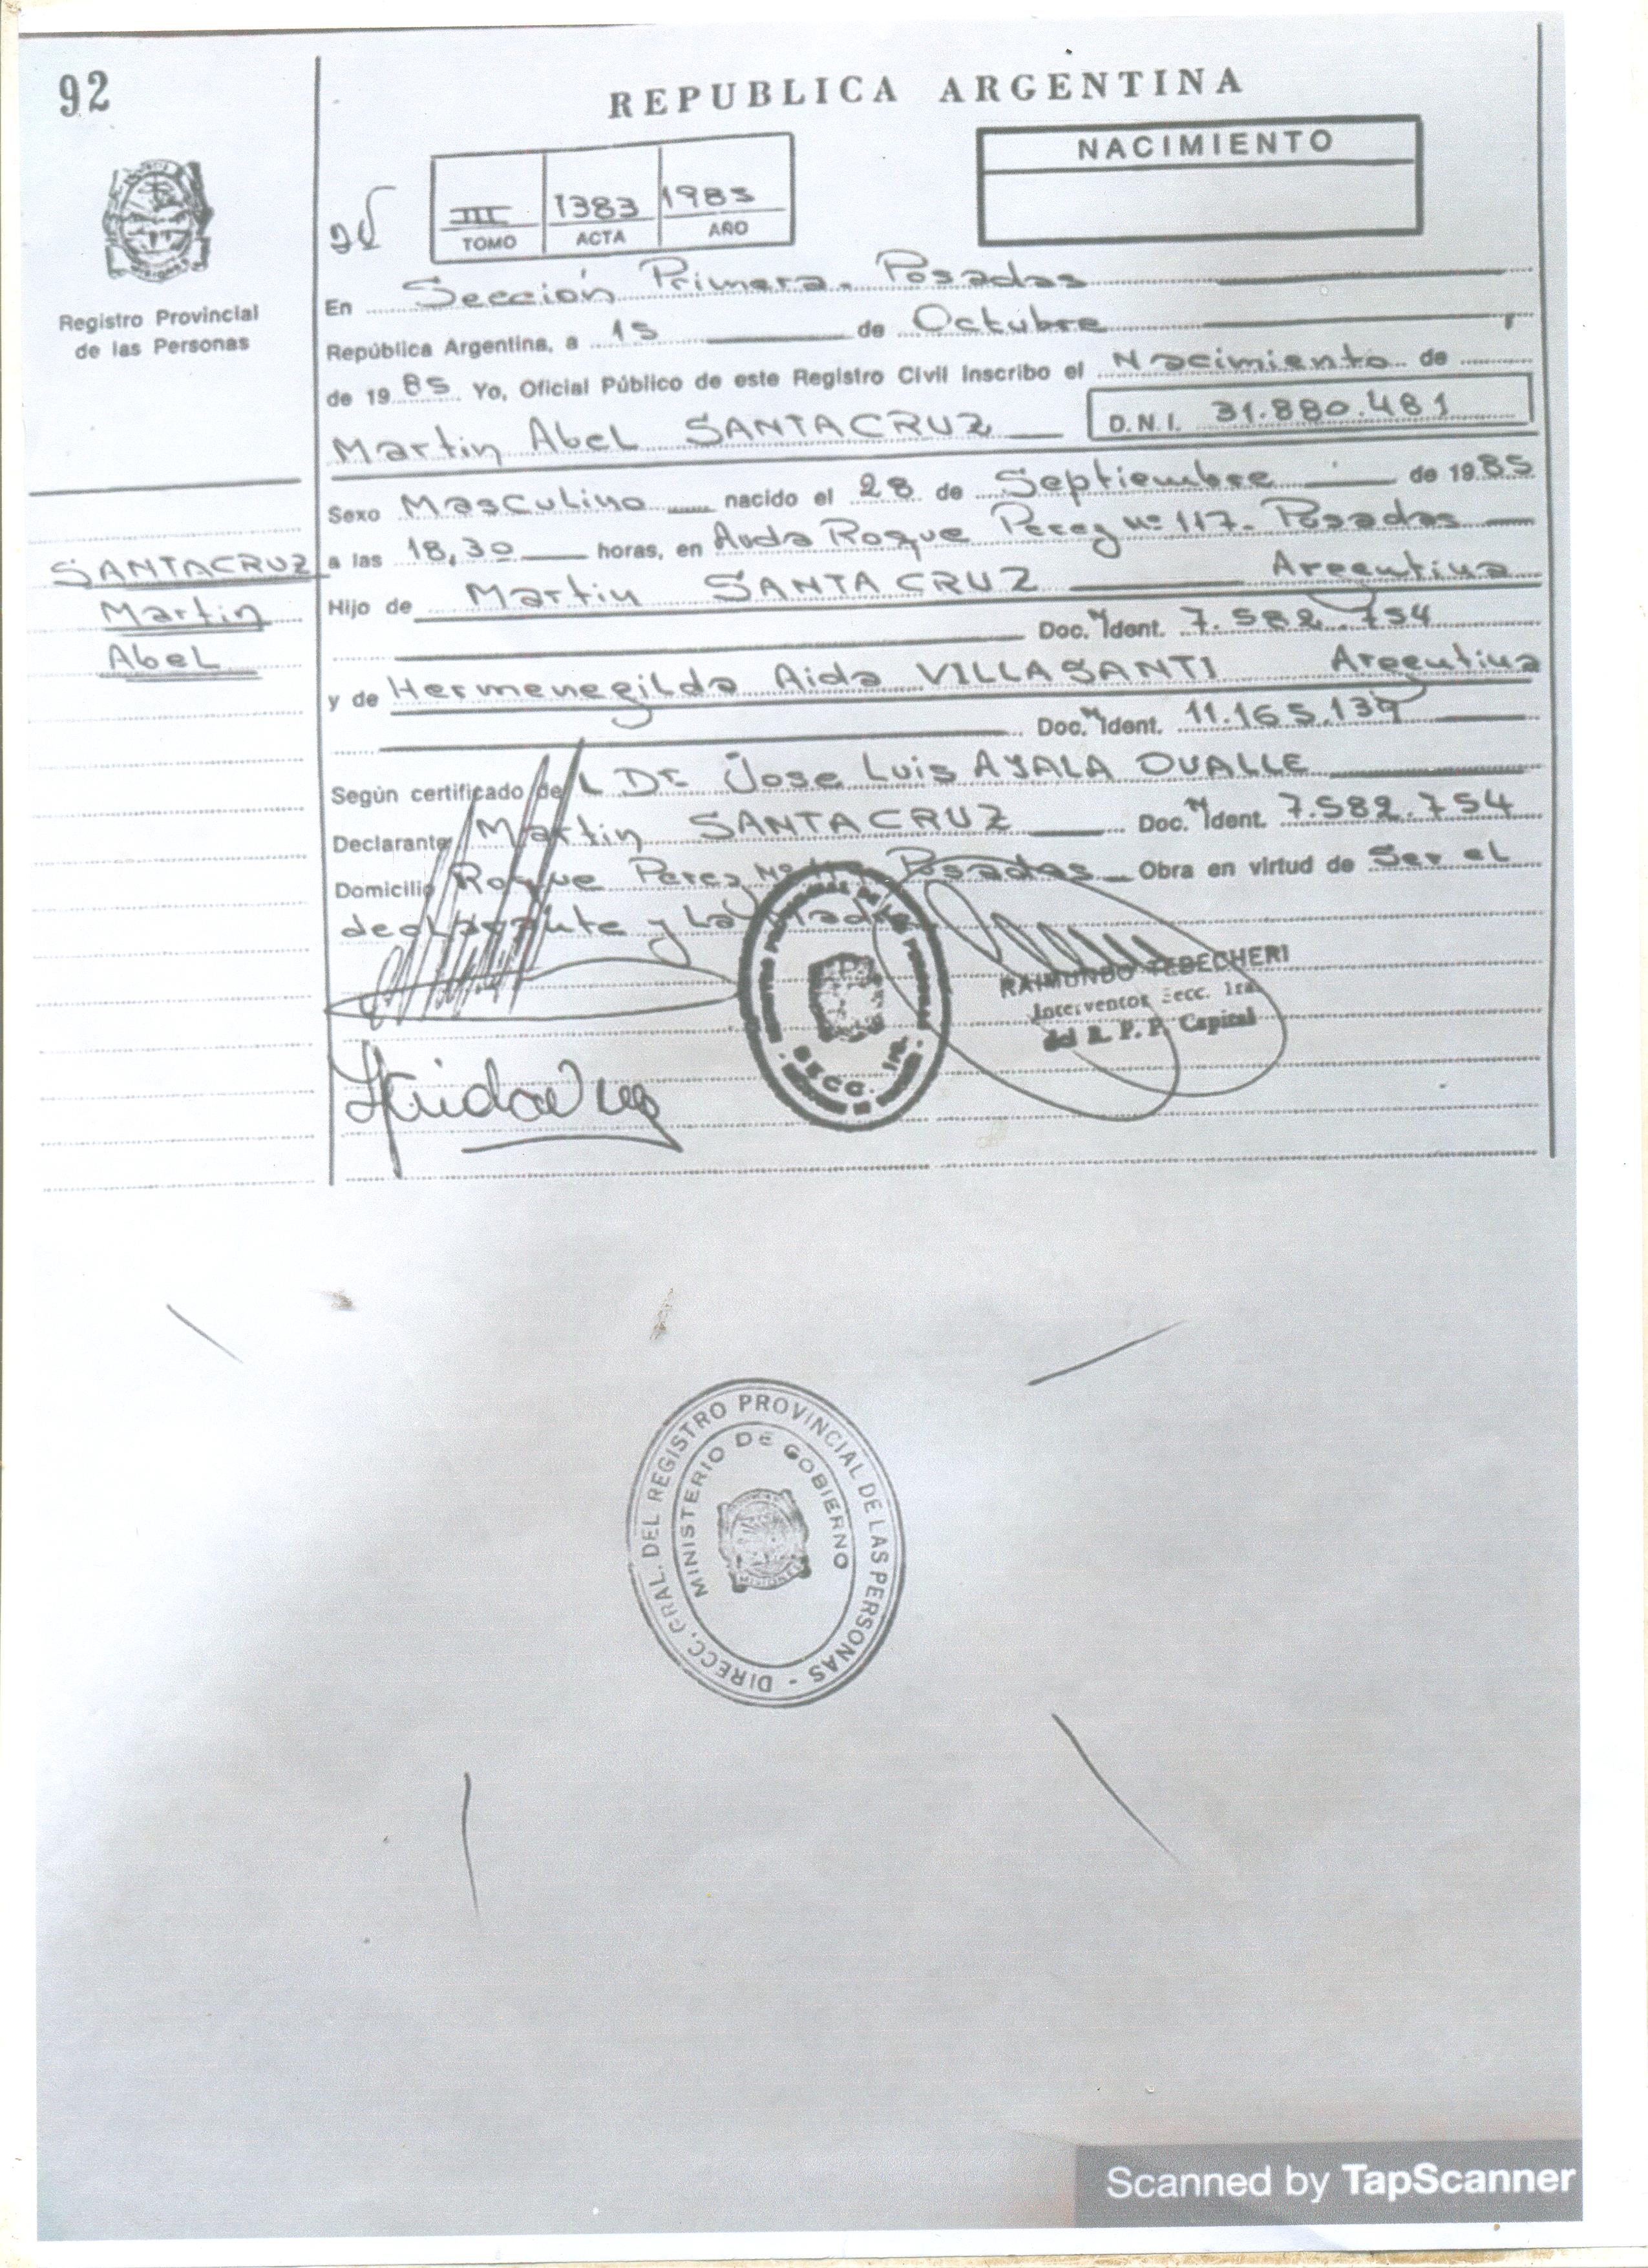 92
REPUBLICA ARGENTINA
NACIMIENTO
III 1383 1985
TOMO ACTA AÑO
Registro Provincial
de las Personas
En Sección Primera. Posadas
República Argentina, a 15 de Octubre
de 1985 Yo, Oficial Público de este Registro Civil inscribo el Nacimiento de
Martin Abel SANTACRUZ D.N.I. 31.880.481
Sexo Masculino nacido el 28 de Septiembre de 1985
a las 18,30 horas, en Avda Roque Perez Nº 117. Posadas
SANTACRUZ
Martin
Abel
Hijo de Martin SANTA CRUZ Argentina
Doc. Ident. 7.582.754
y de Hermenegilda Aida VILLASANTI Argentina
Doc. Ident. 11.165.139
Según certificado del Dr Jose Luis AYALA OVALLE
Declarante Martin SANTACRUZ Doc. Ident. 7.582.754
Domicilio Roque Perez Nº Posadas Obra en virtud de Ser el
declarante y La
RAIMUNDO TEBECHERI
Interventor Secc. 1ra.
del R. P. P. Capital
SECC. 1ra.
DIRECC. GRAL. DEL REGISTRO PROVINCIAL DE LAS PERSONAS -
MINISTERIO DE GOBIERNO
MISIONES
Scanned by TapScanner